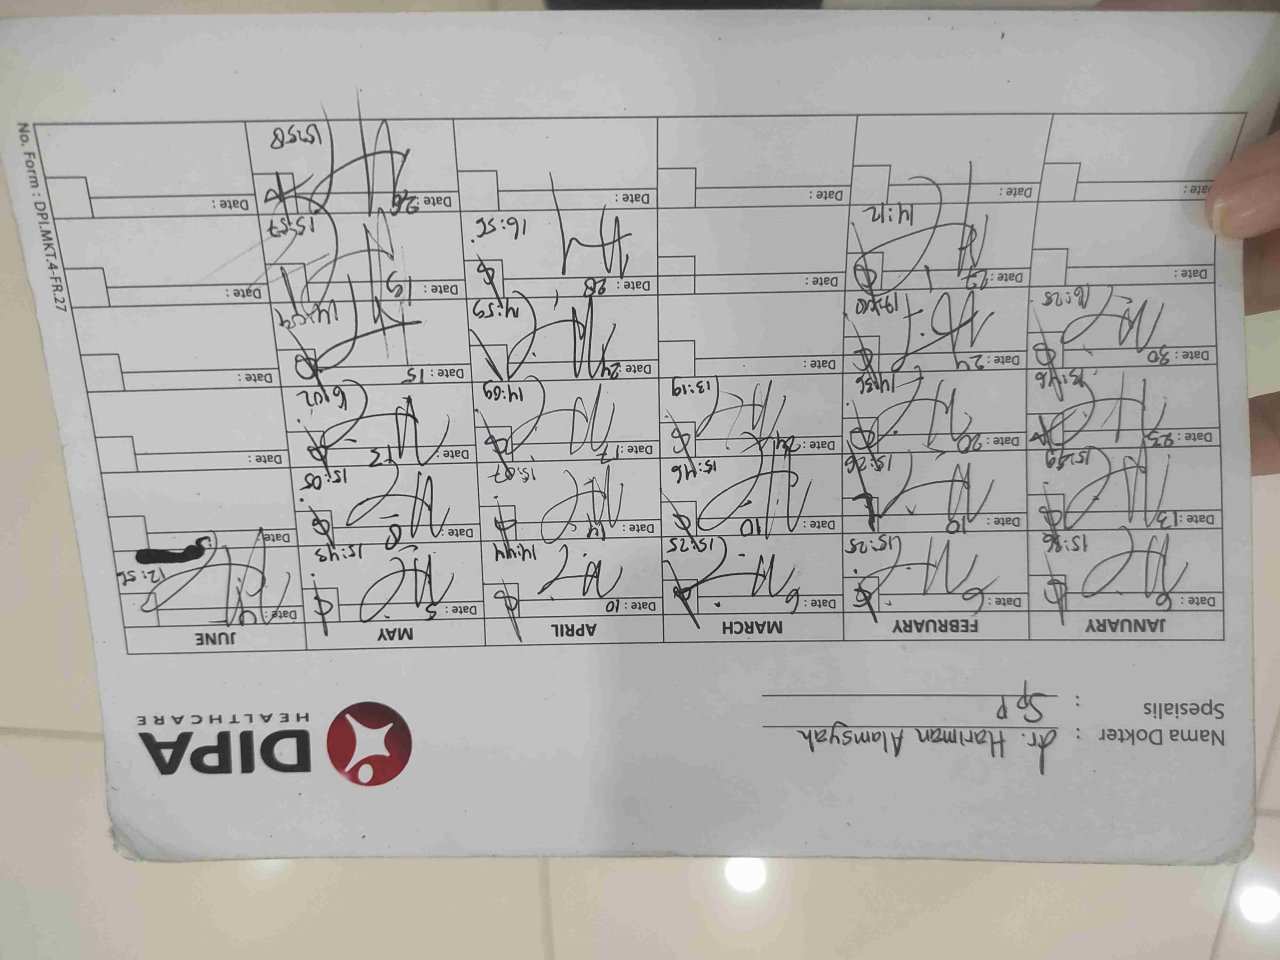 DIPA
HEALTHCARE
Nama Dokter : dr. Hariman Alamsyah
Spesialis : SpP
JANUARY FEBRUARY MARCH APRIL MAY JUNE
Date : 6 Date : 6 Date : 6 Date : 10 Date : 5 Date : 4
15:36 15:25 15:25 14:44 15:43 12:56
Date : 13 Date : 10 Date : 10 Date : 14 Date : 8 Date :
15:59 15:26 15:46 15:07 15:05
Date : 23 Date : 20 Date : 24 Date : 17 Date : 13 Date :
13:46 14:36 13:19 14:09 16:02
Date : 30 Date : 24 Date : Date : 24 Date : 15 Date :
16:28 14:59
Date : Date : 27 Date : Date : 28 Date : 19 Date :
14:12 16:56 15:57
Date : Date : Date : Date : Date : 26 Date :
15:58
No. Form : DPI.MKT.4-FR.27